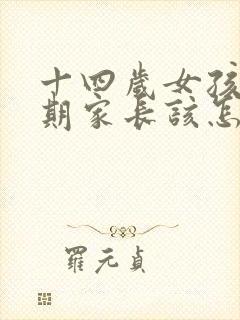 十四歲女孩
期家長該怎
羅元貞